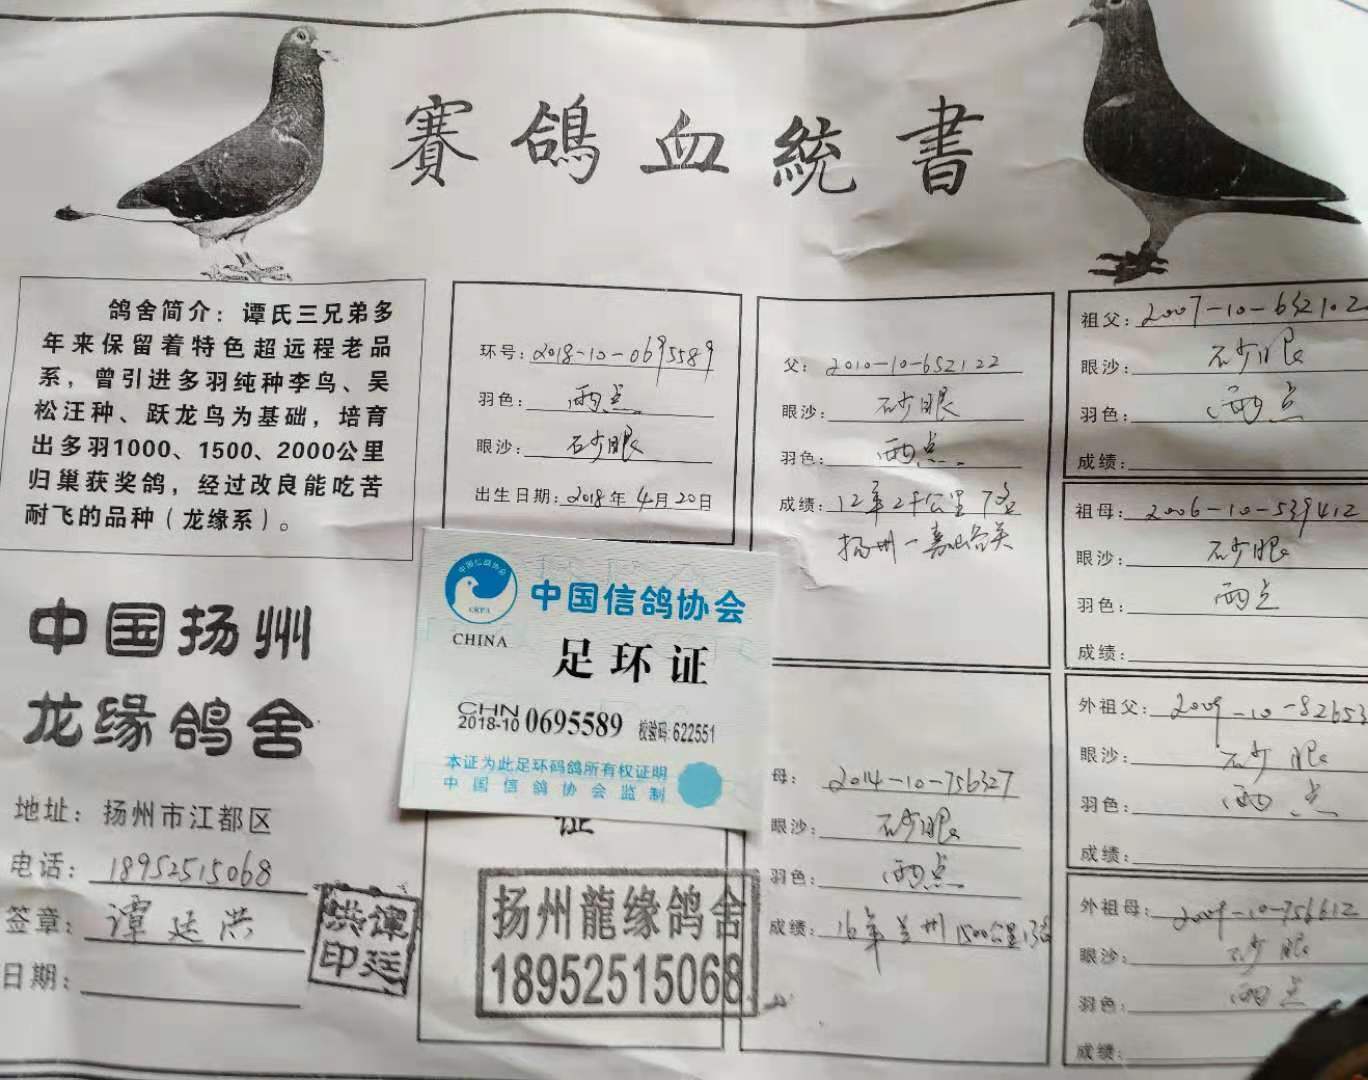 賽鴿血統書
鸽舍简介：谭氏三兄弟多
年来保留着特色超远程老品
系，曾引进多羽纯种李鸟、吴
松汪种、跃龙鸟为基础，培育
出多羽1000、1500、2000公里
归巢获奖鸽，经过改良能吃苦
耐飞的品种（龙缘系）。
中国扬州
龙缘鸽舍
地址：扬州市江都区
电话：18952515068
签章：谭廷洪
日期：
洪谭
印廷
环号：2018-10-0695589
羽色：雨点
眼沙：砂眼
出生日期：2018年4月20日
中国信鸽协会
CRPA
CHINA
中国信鸽协会
足环证
CHN
2018-10 0695589 校验码：622551
本证为此足环码鸽所有权证明
中国信鸽协会监制
证
扬州龍缘鸽舍
18952515068
父：2010-10-652122
眼沙：砂眼
羽色：雨点
成绩：12年2千公里7名
扬州-嘉峪关
母：2014-10-756327
眼沙：砂眼
羽色：雨点
成绩：16年兰州1500公里13名
祖父：2007-10-632102
眼沙：砂眼
羽色：雨点
成绩：
祖母：2006-10-539412
眼沙：砂眼
羽色：雨点
成绩：
外祖父：2009-10-82653
眼沙：砂眼
羽色：雨点
成绩：
外祖母：2009-10-756612
眼沙：砂眼
羽色：雨点
成绩：